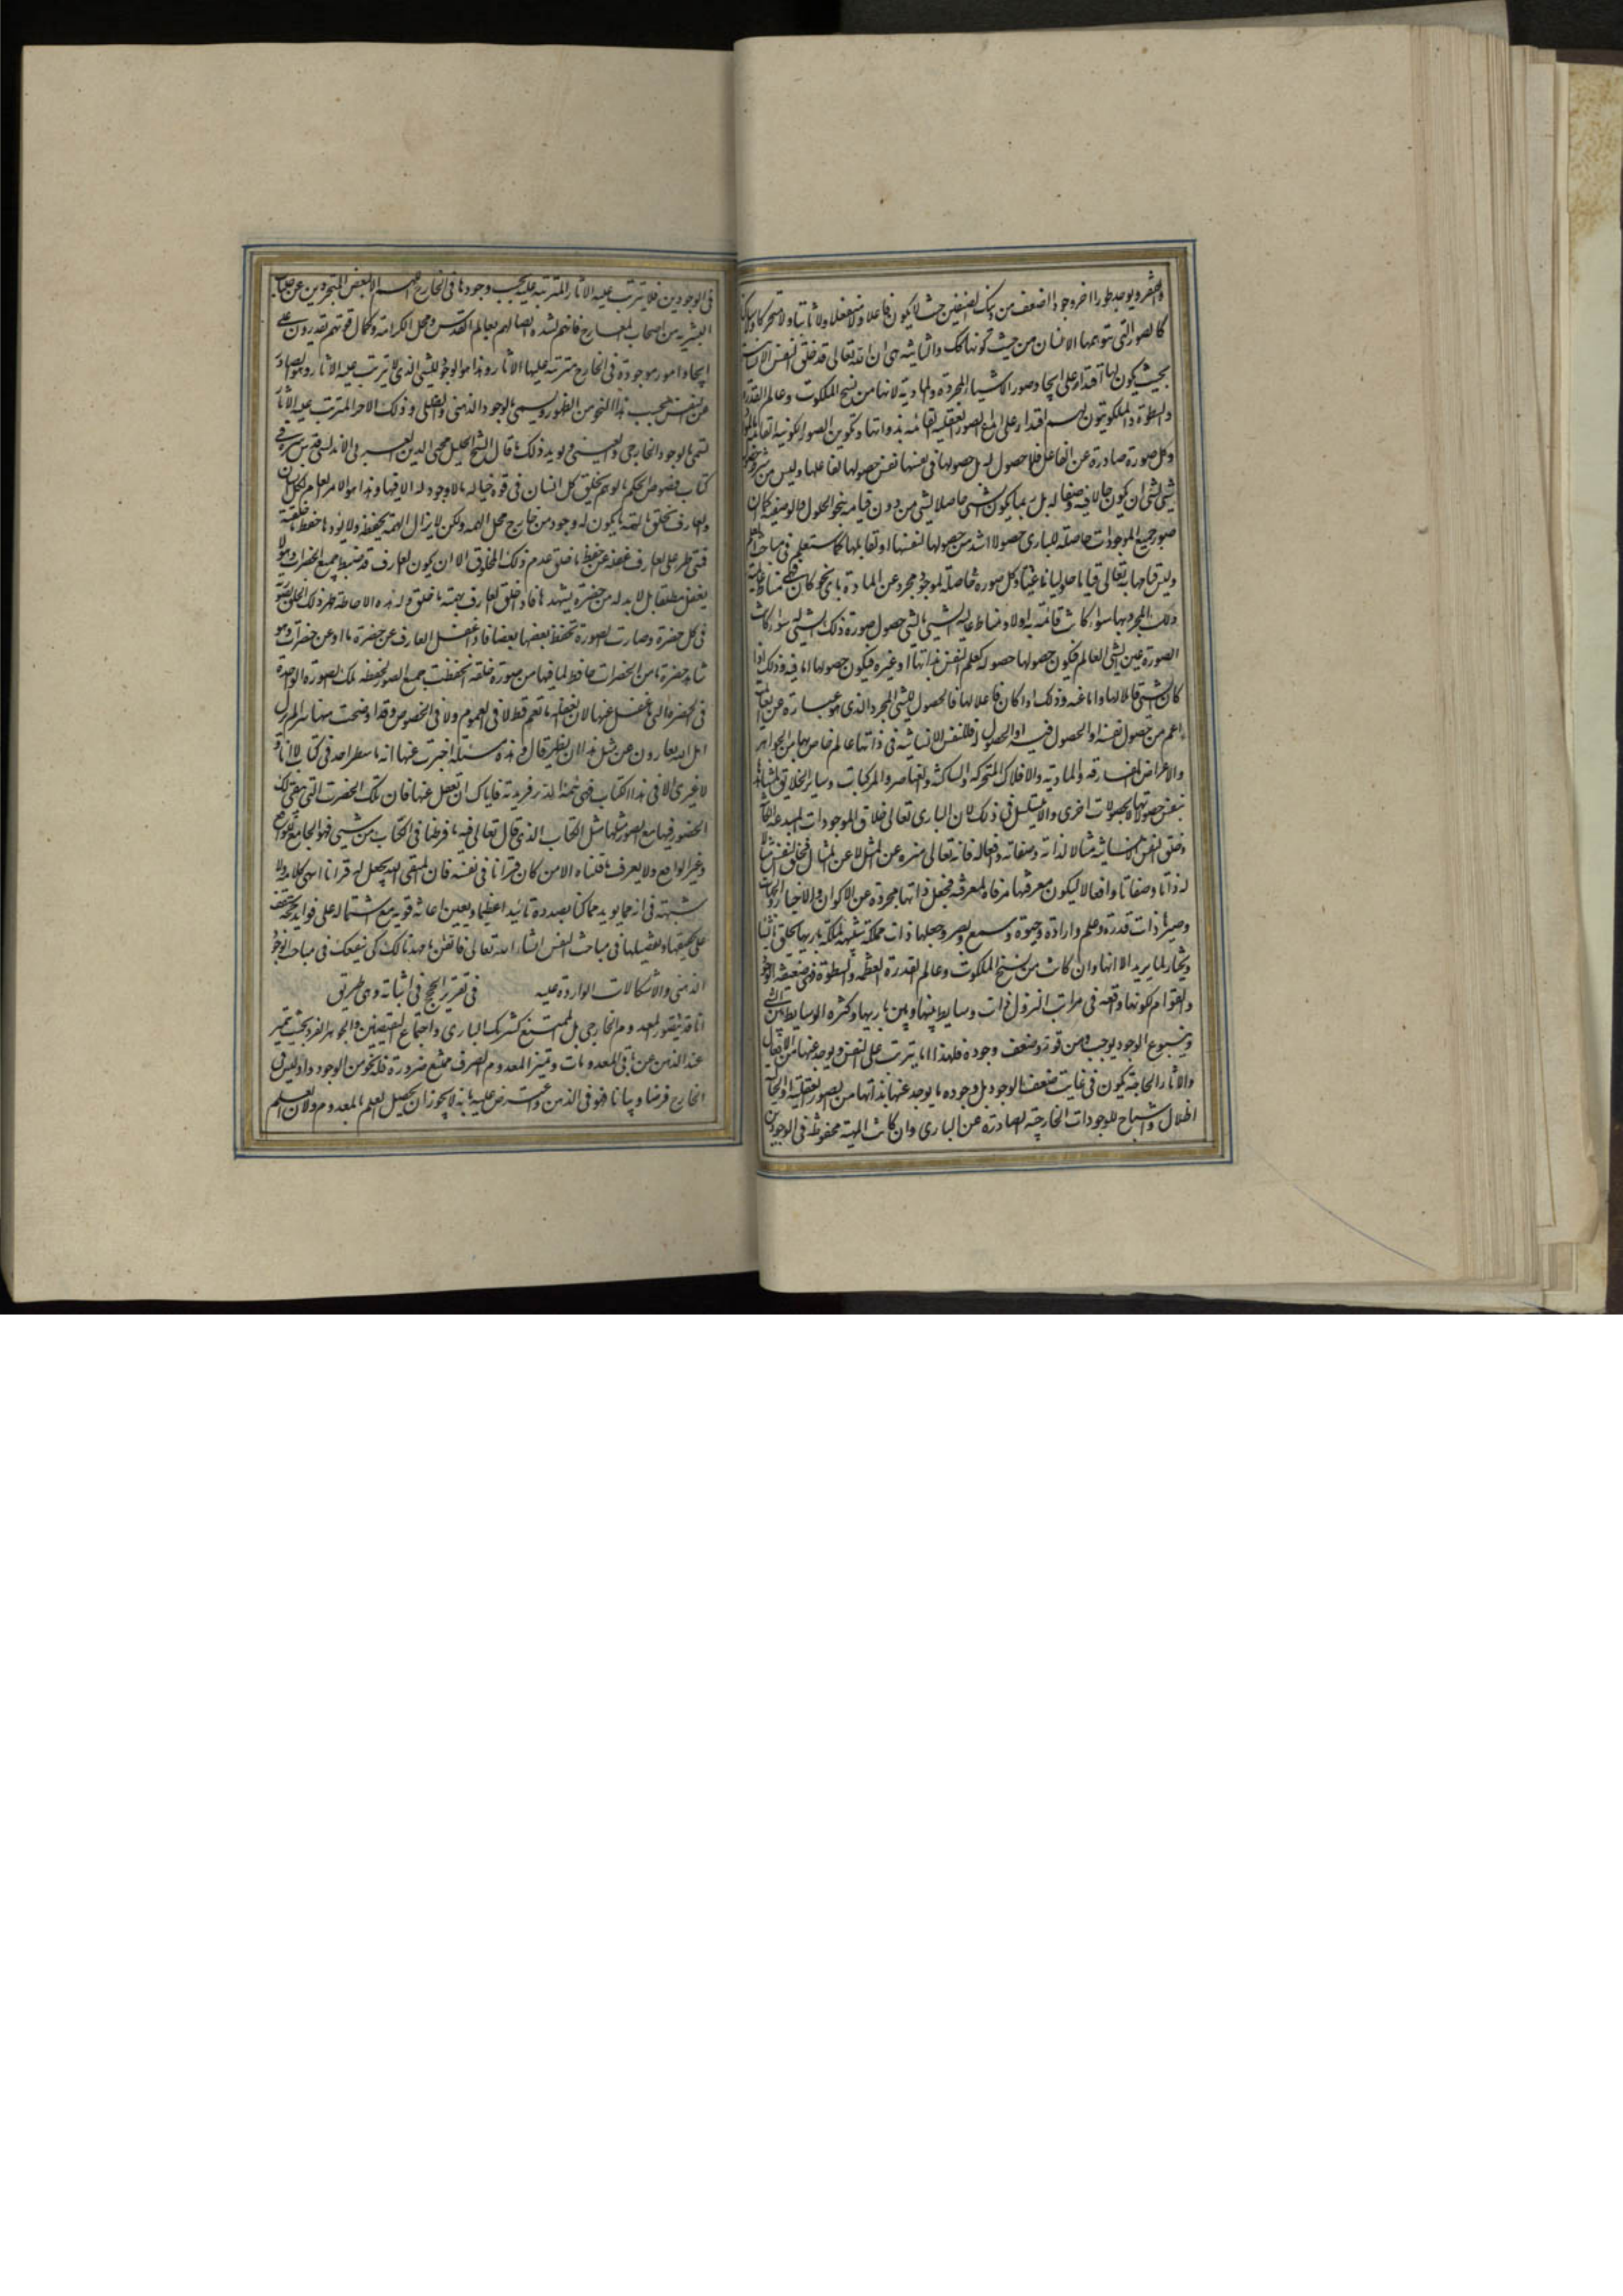 والصفر ويوجد طورا اخر وجودا اضعف من ذينك الضعيفين حيث لا يكون فاعلا ولا منفعلا ولا ثابتا ولا متحركا ولا ساكنا
كالصور التي يتوهمها الانسان من حيث كونها كذلك والثانية هي ان الله تعالى قد خلق النفس الانسانية
بحيث يكون لها اقتدار على ايجاد صور الاشياء المجردة والمادية لانها من سنخ الملكوت وعالم القدرة
والسطوة والملكوتيون لهم اقتدار على ابداع الصور العقلية القائمة بذواتها وتكوين الصور الكونية القائمة بالمواد
وكل صورة صادرة عن الفاعل فلها حصول له بل حصولها في نفسها نفس حصولها لفاعلها وليس من شرط حصول
شيء لشيء ان يكون حالا فيه وصفا له بل ربما يكون شيء حاصلا لشيء من دون قيامه بنحو الحلول والوصفية كما ان
صور جميع الموجودات حاصلة للباري حصولا اشد من حصولها لنفسها او لقابلها كما ستعلم في مباحث العلم
وليس قيامها به تعالى قياما حلوليا ناعتيا وكل صورة حاصلة لموجود مجرد عن المادة باي نحو كان فهي مناط عالمية
ذلك المجرد بها سواء كانت قائمة به او لا ومناط عالمية الشيء بالشيء حصول صورة ذلك الشيء له سواء كانت
الصورة عين الشيء العالم فيكون حصولها حصوله كعلم النفس بذاتها او غيره فيكون حصولها اما فيه وذلك اذا
كان الشيء قابلا لها واما عنه وذلك اذا كان فاعلا لها فالحصول للشيء المجرد الذي هو عبارة عن العالمية
اعم من حصول نفسه او الحصول فيه او الحصول له فللنفس الانسانية في ذاتها عالم خاص بها من الجواهر
والاعراض المفارقة والمادية والافلاك المتحركة والساكنة والعناصر والمركبات وسائر الخلايق يشاهدها
بنفس حصولاتها لا بحصولات اخرى والا يتسلسل في ذلك لان الباري تعالى خلاق الموجودات المبدعة والكائنة
وخلق النفس الانسانية مثالا لذاته وصفاته وافعاله فانه تعالى منزه عن المثل لا عن المثال فخلق النفس مثالا
له ذاتا وصفاتا وافعالا ليكون معرفتها مرقاة لمعرفته فجعل ذاتها مجردة عن الاكوان والاحياز والجهات
وصيرها ذات قدرة وعلم وارادة وحيوة وسمع وبصر وجعلها ذات مملكة شبيهة لمملكة باريها يخلق ما يشاء
ويختار لما يريد الا انها وان كانت من سنخ الملكوت وعالم القدرة والعظمة والسطوة فهي ضعيفة الوجود
والقوام لكونها واقعة في مراتب النزول ذات وسايط بينها وبين باريها وكثرة الوسايط بين الشيء
وينبوع الوجود يوجب وهن قوته وضعف وجوده فلهذا ما يترتب على النفس ويوجد عنها من الافعال
والاثار الخاصة يكون في غاية ضعف الوجود بل وجود ما يوجد عنها بذاتها من الصور العقلية والخيالية
اظلال واشباح للوجودات الخارجية الصادرة عن الباري وان كانت المهية محفوظة في الوجودين
في الوجودين فلا يترتب عليه الاثار المترتبة عليه بحسب وجودها في الخارج اللهم الا لبعض المتجردين عن جلباب
البشرية من اصحاب المعارج فانهم لشدة اتصالهم بعالم القدس ومحل الكرامة وكمال قوتهم يقدرون على
ايجاد امور موجودة في الخارج مترتبة عليها الاثار وهذا هو الوجود للشيء الذي لا يترتب عليه الاثار وهو الصادر
عن النفس بحسب هذا النحو من الظهور ويسمى بالوجود الذهني والظلي وذلك الاخر المترتب عليه الاثار
يسمى بالوجود الخارجي والعيني ويؤيد ذلك ما قال الشيخ الجليل محيي الدين العربي الاندلسي قدس سره في
كتاب فصوص الحكم بالوهم يخلق كل انسان في قوة خياله ما لا وجود له الا فيها وهذا هو الامر العام لكل انسان
والعارف يخلق بالهمة ما يكون له وجود من خارج محل الهمة ولكن لا يزال الهمة يحفظه ولا يؤدها حفظ ما خلقته
فمتى طرء على العارف غفلة عن حفظ ما خلق عدم ذلك المخلوق الا ان يكون العارف قد ضبط جميع الحضرات وهو لا
يغفل مطلقا بل لا بد له من حضرة يشهدها فاذا خلق العارف بهمته ما خلق وله هذه الاحاطة ظهر ذلك الخلق بصورته
في كل حضرة وصارت الصورة تحفظ بعضها بعضا فاذا غفل العارف عن حضرة ما او عن حضرات وهو
شاهد حضرة ما من الحضرات حافظ لما فيها من صورة خلقه انحفظت جميع الصور بحفظه تلك الصورة الواحدة
في الحضرة التي ما غفل عنها لان الغفلة ما تعم قط لا في العموم ولا في الخصوص وقد اوضحت هنا سرا لم يزل
اهل الله يغارون عن مثل هذا ان يظهر قال وهذه مسئلة اخبرت عنها انه ما سطرها احد في كتاب لا انا ولا
لا غيري الا في هذا الكتاب فهي يتيمة الدهر فريدته فاياك ان تغفل عنها فان تلك الحضرت التي يبقى لك
الحضور فيها مع الصور مثلها مثل الكتاب الذي قال تعالى فيه ما فرطنا في الكتاب من شيء فهو الجامع للواقع
وغير الواقع ولا يعرف ما قلناه الا من كان قرانا في نفسه فان المتقي الله يجعل له فرقانا انتهى كلامه ولا
شبهة في انه مما يؤيد ما كنا بصدده تائيدا عظيما ويعين اعانة قوية مع اشتماله على فوائد جمة ستقف
على تحقيقها وتفصيلها في مباحث النفس انشاء الله تعالى فاتقن ما مهدناه لك لكي ينفعك في مباحث الوجود
الذهني والاشكالات الواردة عليه في تقرير الحجج في اثباته وهي طريق
انا قد نتصور المعدوم الخارجي بل الممتنع كشريك الباري واجتماع النقيضين والجوهر الفرد بحيث يتميز
عند الذهن عن باقي المعدومات وتميز المعدوم الصرف ممتنع ضرورة فله نحو من الوجود واذ ليس في
الخارج فرضا وبيانا فهو في الذهن واعترض عليه بانه لا يجوز ان يحصل العلم بالمعدوم ولان العلم